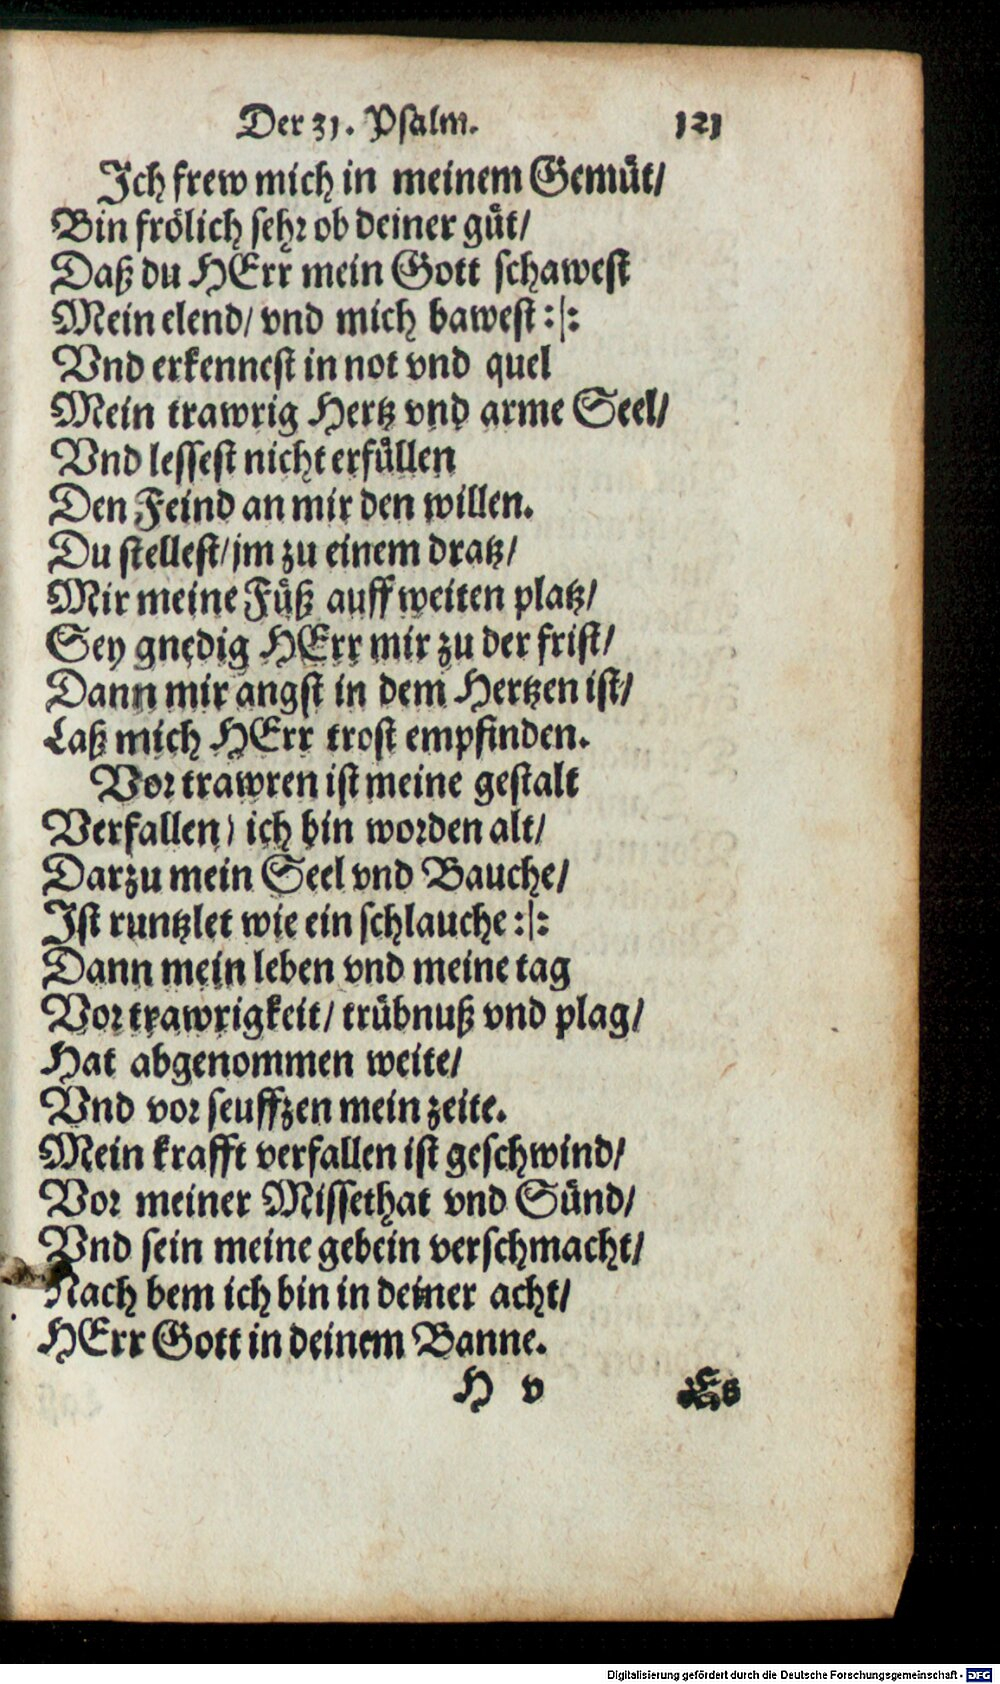 Der 31. Psalm. 121
Ich frew mich in meinem Gemuͤt/
Bin froͤlich sehr ob deiner guͤt/
Daß du HErr mein Gott schawest
Mein elend/ vnd mich bawest :|:
Vnd erkennest in not vnd quel
Mein trawrig Hertz vnd arme Seel/
Vnd lessest nicht erfuͤllen
Den Feind an mir den willen.
Du stellest/ jm zu einem dratz/
Mir meine Fuͤß auff weiten platz/
Sey gnedig HErr mir zu der frist/
Dann mir angst in dem Hertzen ist/
Laß mich HErr trost empfinden.
Vor trawren ist meine gestalt
Verfallen) ich bin worden alt/
Darzu mein Seel vnd Bauche/
Ist runtzlet wie ein schlauche :|:
Dann mein leben vnd meine tag
Vor trawrigkeit/ truͤbnuß vnd plag/
Hat abgenommen weite/
Vnd vor seuffzen mein zeite.
Mein krafft verfallen ist geschwind/
Vor meiner Missethat vnd Suͤnd/
Vnd sein meine gebein verschmacht/
Nach bem ich bin in deiner acht/
HErr Gott in deinem Banne.
H v Es
Digitalisierung gefördert durch die Deutsche Forschungsgemeinschaft - DFG